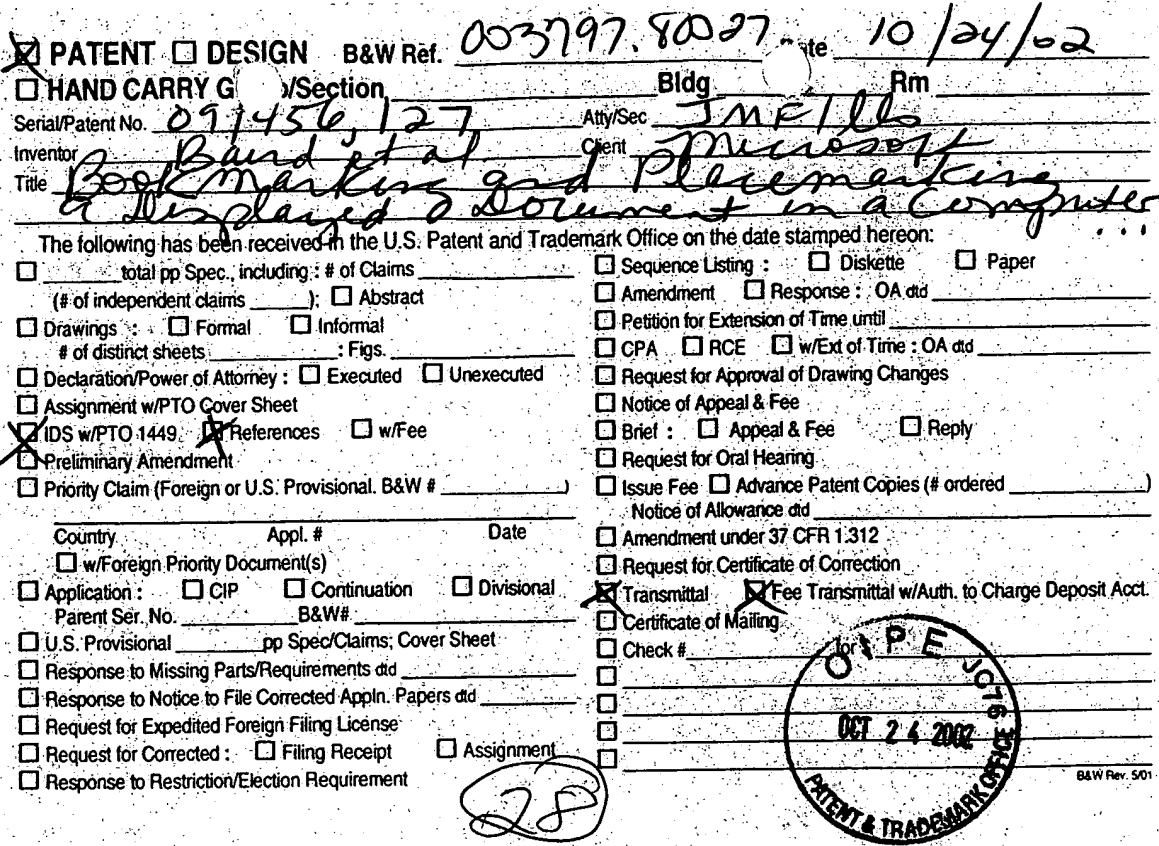 ☒ PATENT ☐ DESIGN B&W Ref. 003797.80027 ate 10/24/02
☐ HAND CARRY G )/Section Bldg Rm
Serial/Patent No. 09/456,127 Atty/Sec JMF/lls
Inventor Baird et al Client Microsoft
Title Bookmarking and Placemarking
a Displayed Document in a Computer ...
The following has been received in the U.S. Patent and Trademark Office on the date stamped hereon:
☐ total pp Spec., including : # of Claims
(# of independent claims ): ☐ Abstract
☐ Drawings : ☐ Formal ☐ Informal
# of distinct sheets : Figs.
☐ Declaration/Power of Attorney : ☐ Executed ☐ Unexecuted
☐ Assignment w/PTO Cover Sheet
☒ IDS w/PTO 1449 ☒ References ☐ w/Fee
☐ Preliminary Amendment
☐ Priority Claim (Foreign or U.S. Provisional. B&W # )
Country Appl. # Date
☐ w/Foreign Priority Document(s)
☐ Application : ☐ CIP ☐ Continuation ☐ Divisional
Parent Ser. No. B&W#
☐ U.S. Provisional pp Spec/Claims; Cover Sheet
☐ Response to Missing Parts/Requirements dtd
☐ Response to Notice to File Corrected Appln. Papers dtd
☐ Request for Expedited Foreign Filing License
☐ Request for Corrected : ☐ Filing Receipt ☐ Assignment
☐ Response to Restriction/Election Requirement
28
☐ Sequence Listing : ☐ Diskette ☐ Paper
☐ Amendment ☐ Response : OA dtd
☐ Petition for Extension of Time until
☐ CPA ☐ RCE ☐ w/Ext of Time : OA dtd
☐ Request for Approval of Drawing Changes
☐ Notice of Appeal & Fee
☐ Brief : ☐ Appeal & Fee ☐ Reply
☐ Request for Oral Hearing
☐ Issue Fee ☐ Advance Patent Copies (# ordered )
Notice of Allowance dtd
☐ Amendment under 37 CFR 1.312
☐ Request for Certificate of Correction
☒ Transmittal ☒ Fee Transmittal w/Auth. to Charge Deposit Acct.
☐ Certificate of Mailing
☐ Check # for
☐
☐
☐
☐
☐
O I P E JC76
OCT 24 2002
PATENT & TRADEMARK OFFICE
B&W Rev. 5/01